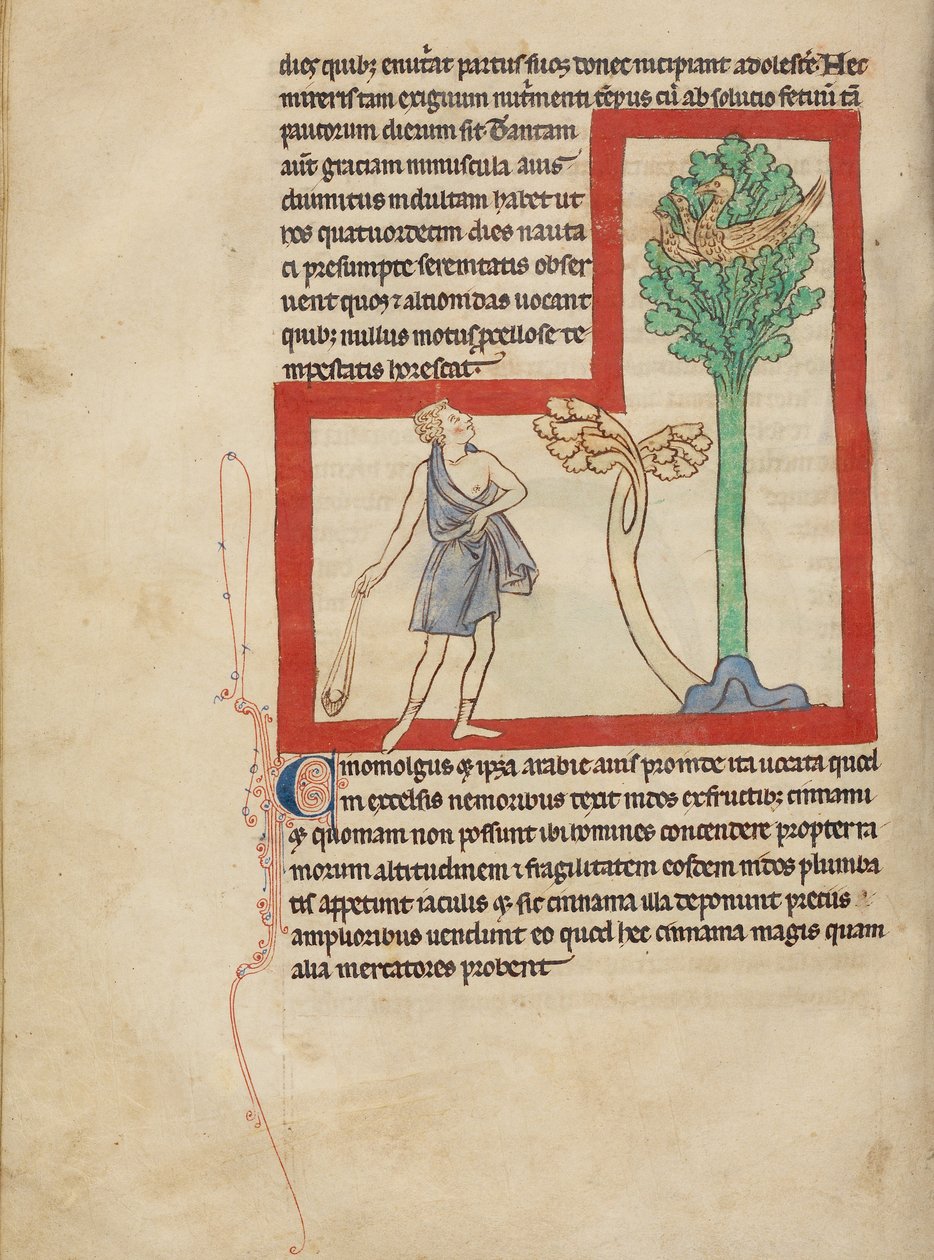 dies quib; enutͬat partus suos donec incipiant adolesce͂. Hec
mireris tam exiguum nutͬmenti te͂pus cu͂ absolucio fetuu͂ ta͂
paucorum dierum sit. Tantam
aut͂ graciam minuscula auis
diuinitus indultam habet ut
hos quatuordecim dies nauta
ci presumpte serenitatis obser
uent quos ⁊ alcionidas uocant
quib; nullus motus ꝓcellose te-
mpestatis horescat.
Cinomolgus ⁊ ipsa arabie auis proinde ita uocata quod
in excelsis nemoribus texit nidos ex fructib; cinnami
⁊ quoniam non possunt ibi homines concendere propter ra
morum altitudinem ⁊ fragilitatem eosdem nidos plumba
tis appetunt iaculis ⁊ sic cinnama illa deponunt preciis
amplioribus uendunt eo quod hec cinnama magis quam
alia mercatores probent